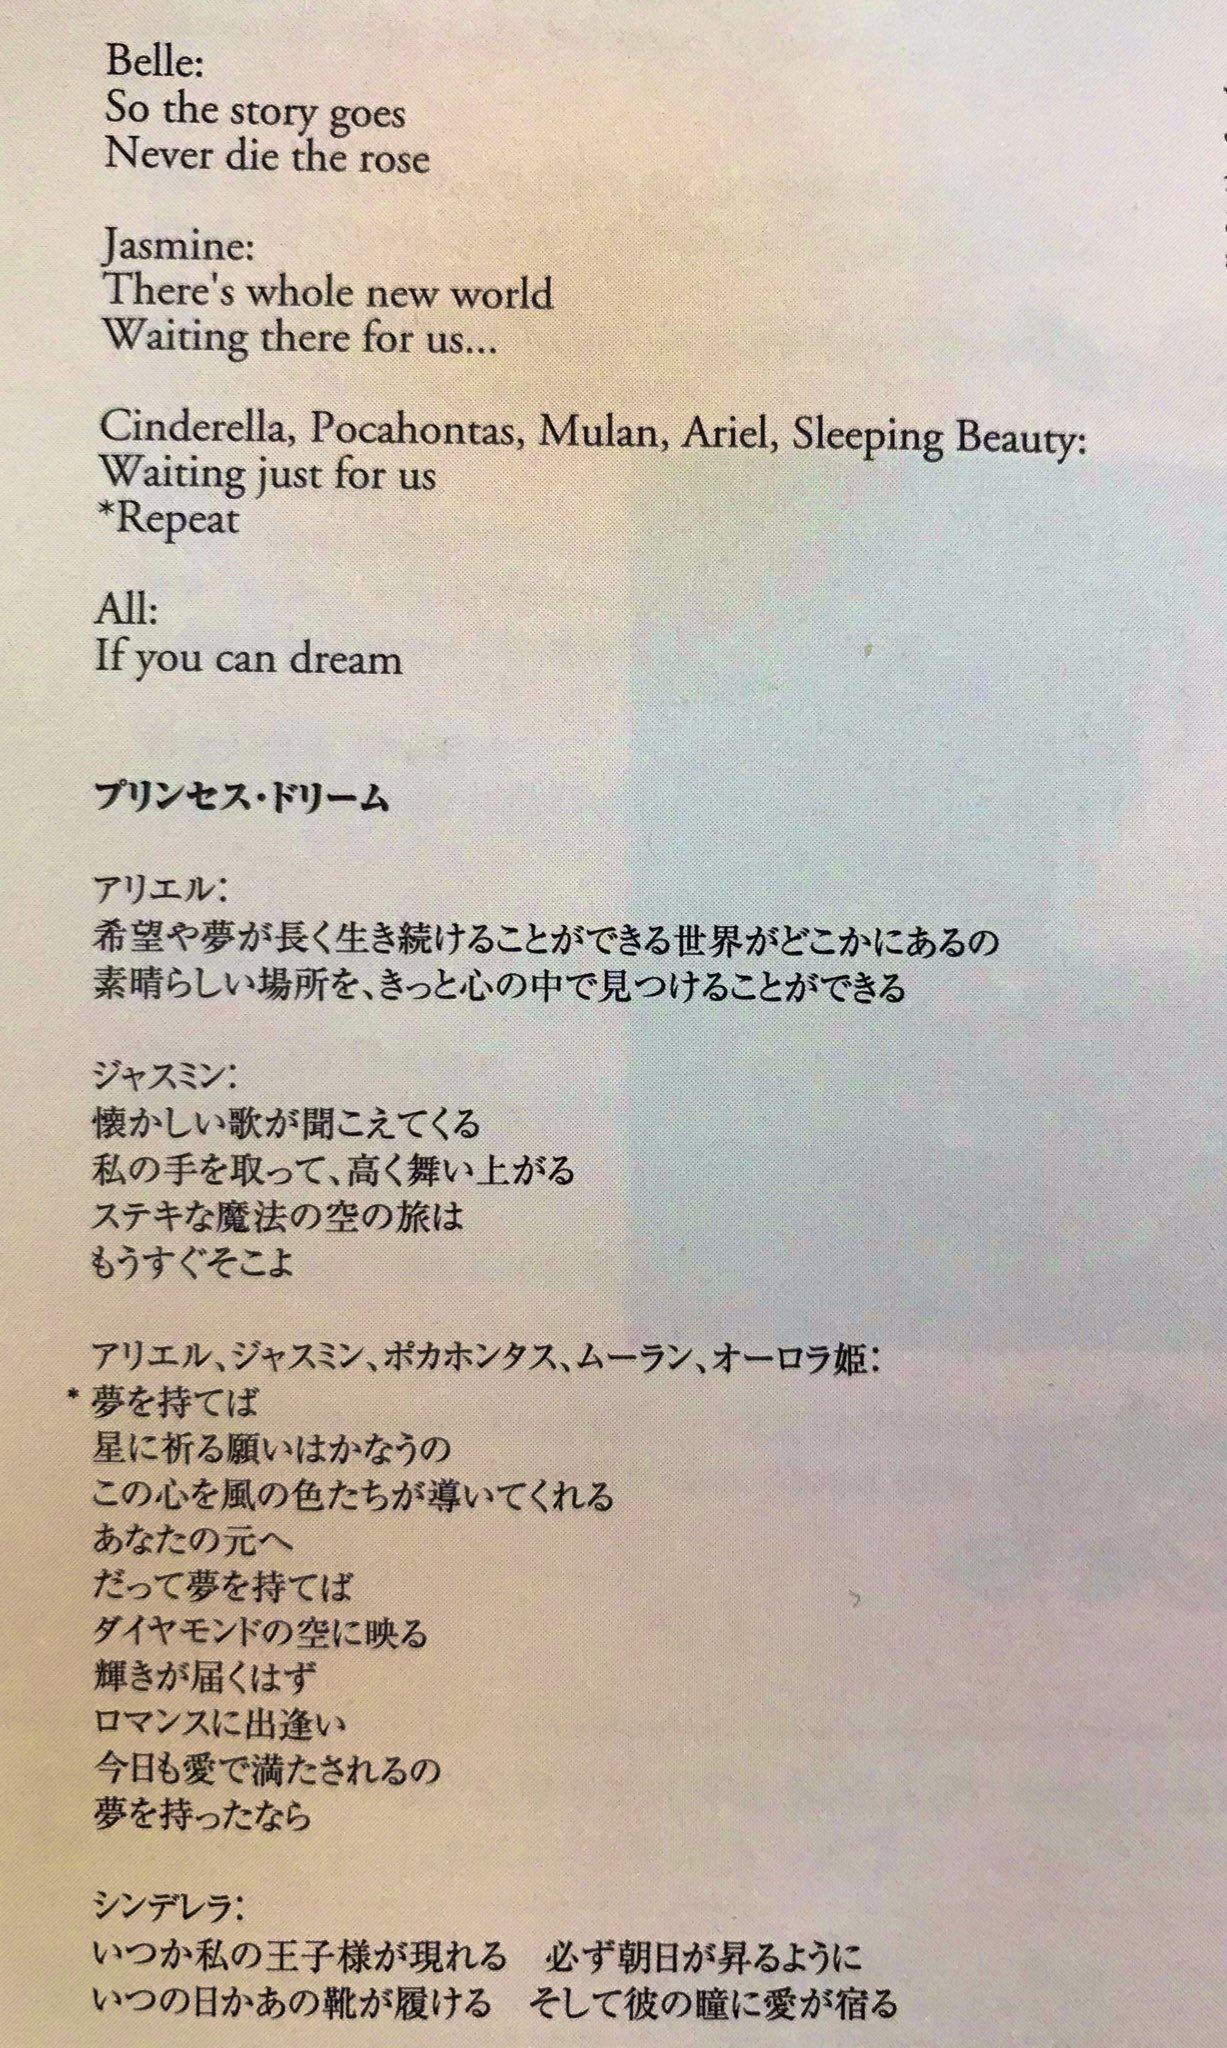 Belle:
So the story goes
Never die the rose
Jasmine:
There's whole new world
Waiting there for us...
Cinderella, Pocahontas, Mulan, Ariel, Sleeping Beauty:
Waiting just for us
*Repeat
All:
If you can dream
プリンセス・ドリーム
アリエル:
希望や夢が長く生き続けることができる世界がどこかにあるの
素晴らしい場所を、きっと心の中で見つけることができる
ジャスミン:
懐かしい歌が聞こえてくる
私の手を取って、高く舞い上がる
ステキな魔法の空の旅は
もうすぐそこよ
アリエル、ジャスミン、ポカホンタス、ムーラン、オーロラ姫:
* 夢を持てば
星に祈る願いはかなうの
この心を風の色たちが導いてくれる
あなたの元へ
だって夢を持てば
ダイヤモンドの空に映る
輝きが届くはず
ロマンスに出逢い
今日も愛で満たされるの
夢を持ったなら
シンデレラ:
いつか私の王子様が現れる　必ず朝日が昇るように
いつの日かあの靴が履ける　そして彼の瞳に愛が宿る